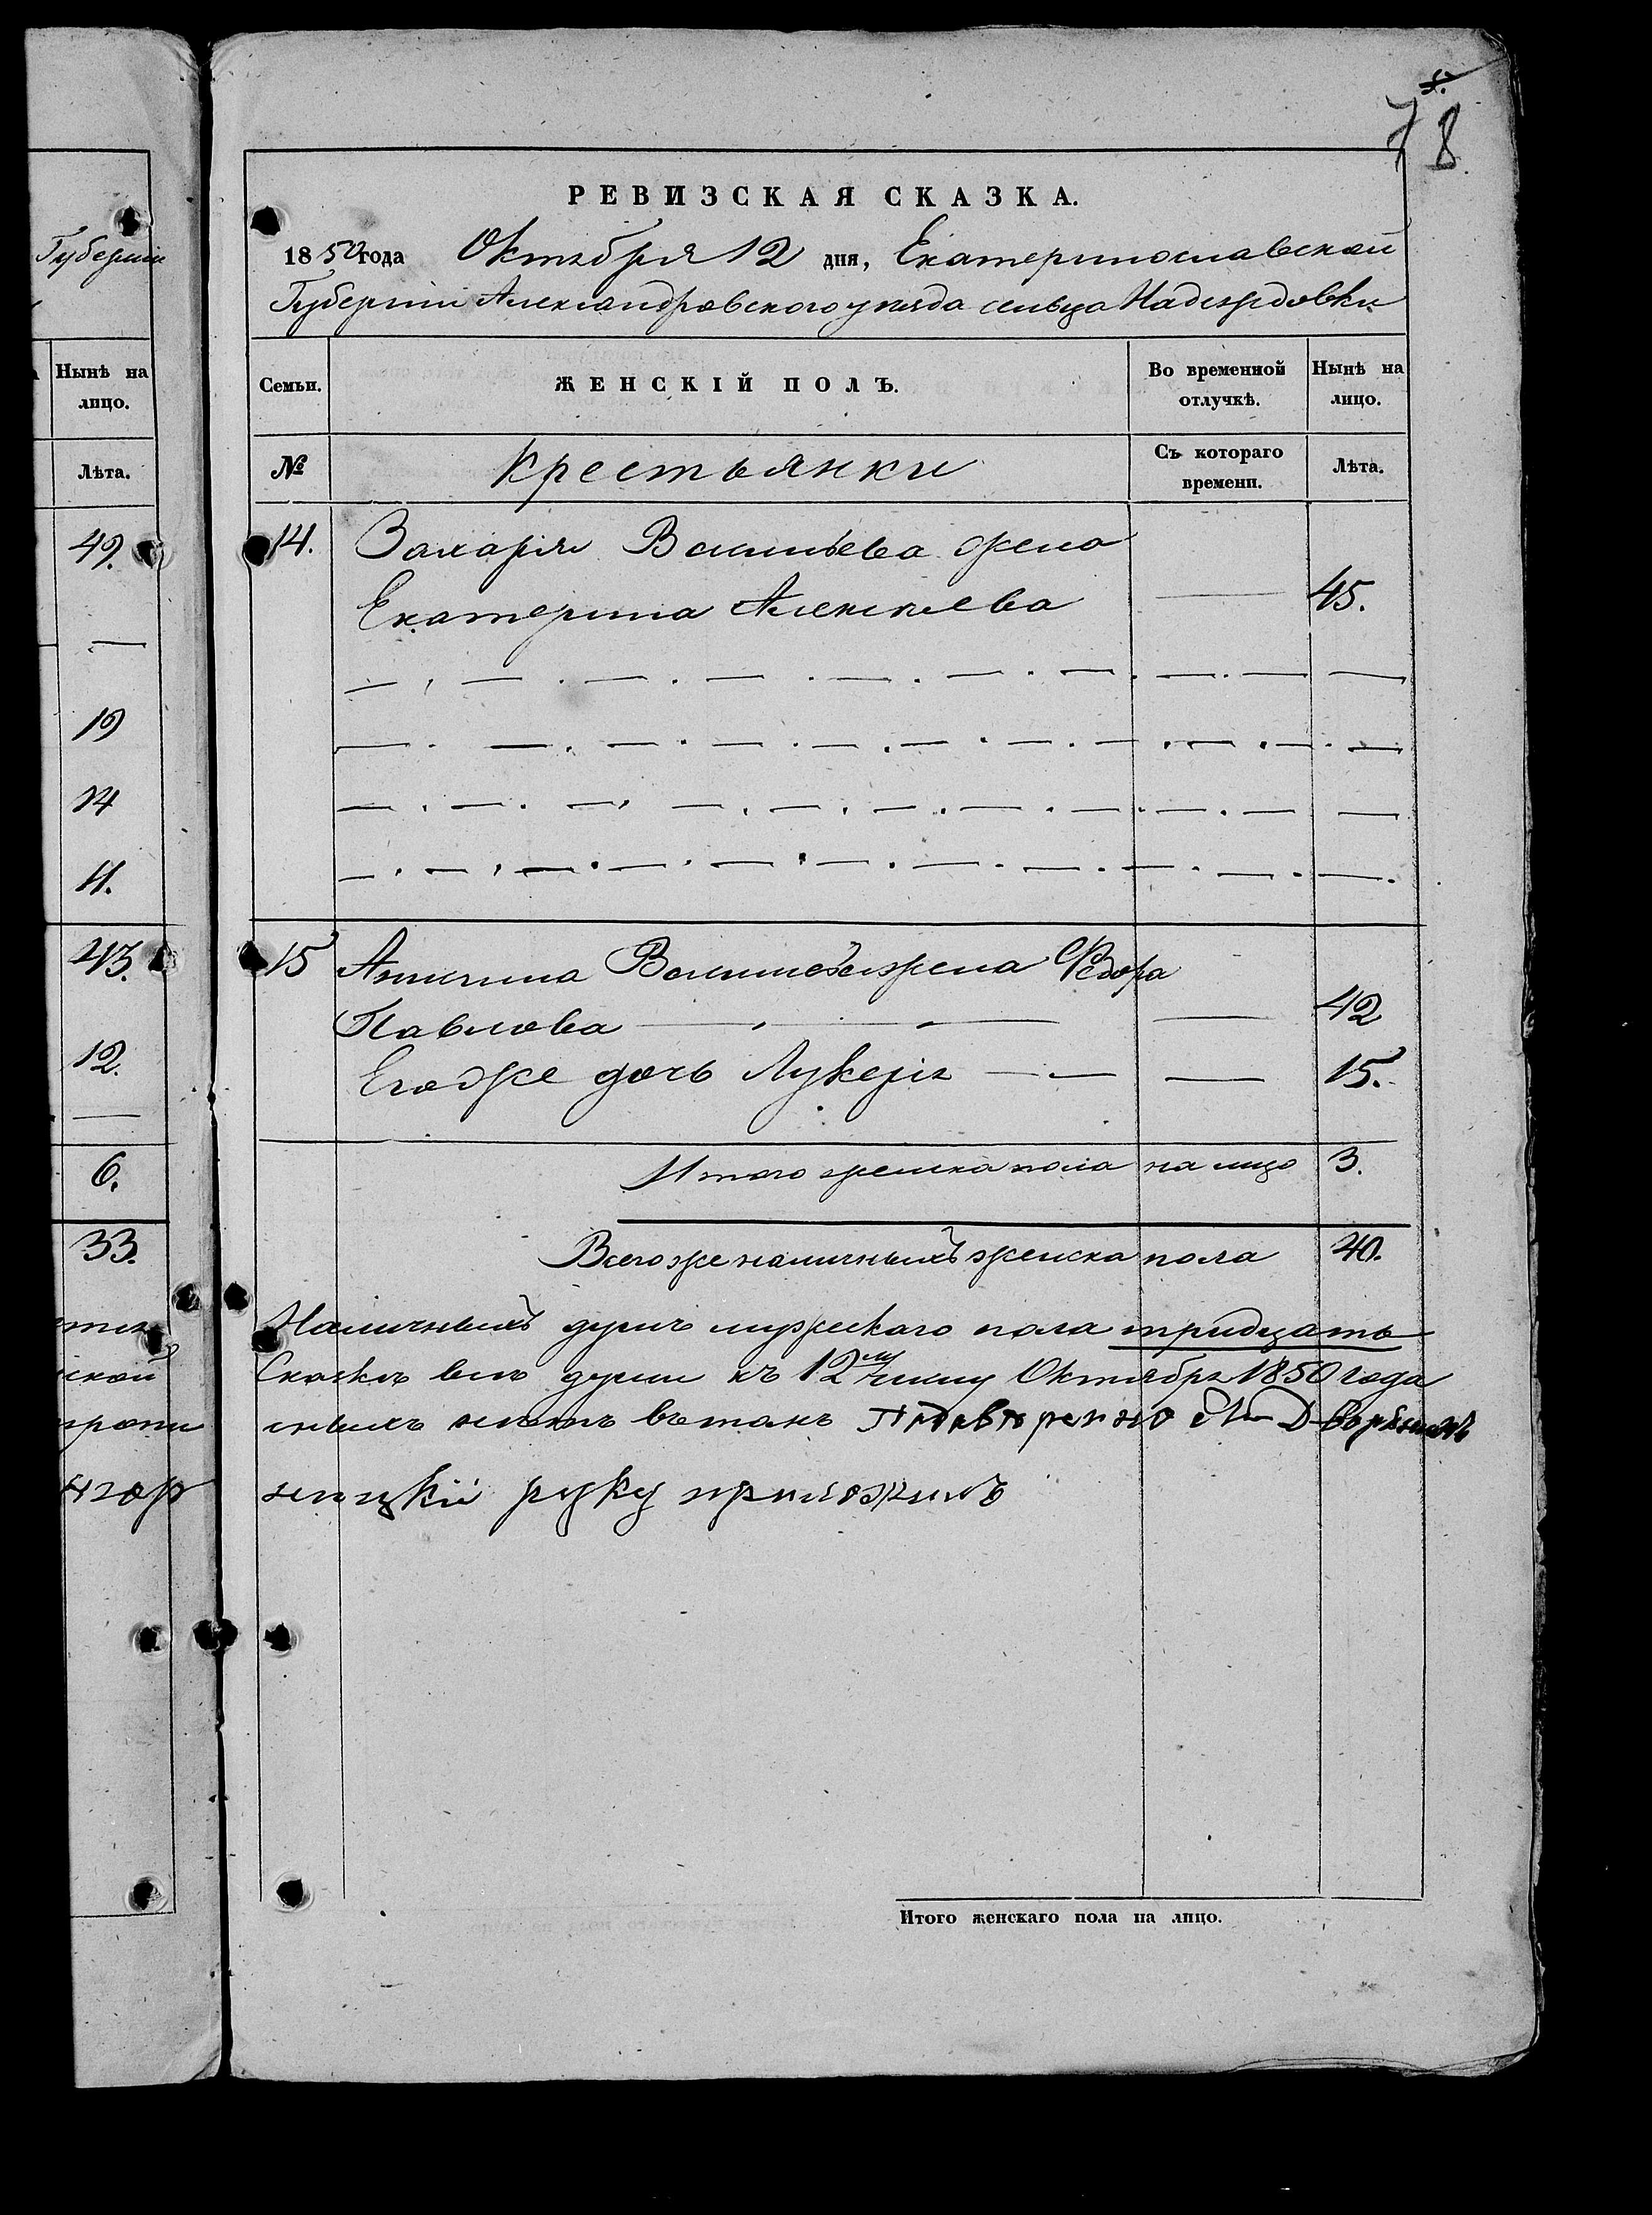 Губерніи
Нынѣ на
лицо.
Лѣта.
49.
19
14
11.
43.
12.
6.
33.
ской
7 8
РЕВИЗСКАЯ СКАЗКА.
1850 года Октября 12 дня, Екатеринославской
Губерніи Александровского уѣзда сельца Надеждовки
Семьи. ЖЕНСКІЙ ПОЛЪ. Во временной отлучкѣ. Нынѣ на лицо.
№ Крестьянки Съ котораго времени. Лѣта.
14. Захарія Васильева жена
Екатерина Алексѣева 45.
15 Васильева жена Федора
Павлова 42
Егоже дочь Лукерія 15.
Итого женска пола на лицо 3.
Всего же наличныхъ женска пола 40.
Наличныхъ душъ мужескаго пола тридцать
всѣ души къ 12му числу Октября 1850 года
нѣтъ въ томъ
руку приложилъ
Итого женскаго пола на лицо.